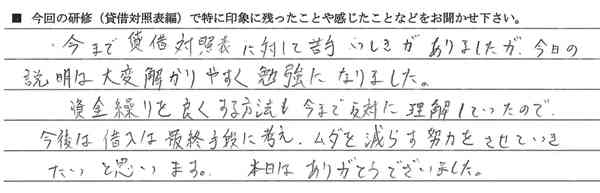 ■ 今回の研修（貸借対照表編）で特に印象に残ったことや感じたことなどをお聞かせ下さい。
今まで貸借対照表に対して苦手いしきがありましたが、今日の
説明は大変解かりやすく勉強になりました。
資金繰りを良くする方法も今まで反対に理解していったので、
今後は借入は最終手段に考え、ムダを減らす努力をさせていき
たいと思います。 本日はありがとうございました。